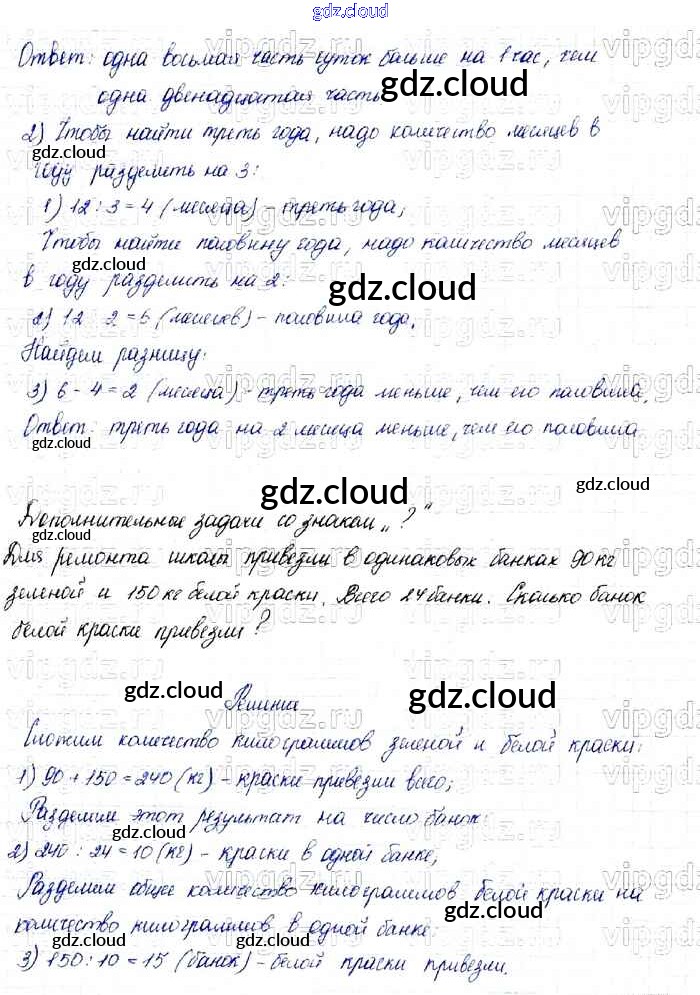 gdz.cloud
Ответ: одна восьмая часть суток больше на 1 час, чем
одна двенадцатая часть
gdz.cloud
2) Чтобы найти треть года, надо количество месяцев в
gdz.cloud
году разделить на 3:
1) 12 : 3 = 4 (месяца) - треть года;
Чтобы найти половину года, надо количество месяцев
gdz.cloud
в году разделить на 2:
gdz.cloud
2) 12 2 = 6 (месяцев) - половина года.
Найдем разницу:
3) 6 - 4 = 2 (месяца) - треть года меньше, чем его половина.
Ответ: треть года на 2 месяца меньше, чем его половина.
gdz.cloud
gdz.cloud
Дополнительные задачи со знаком „?“
gdz.cloud
Для ремонта школы привезли в одинаковых банках 90 кг
зеленой и 150 кг белой краски. Всего 24 банки. Сколько банок
белой краски привезли?
gdz.cloud
gdz.cloud
Сложим количество килограммов зеленой и белой краски:
1) 90 + 150 = 240 (кг) - краски привезли всего;
Разделим этот результат на число банок:
gdz.cloud
2) 240 : 24 = 10 (кг) - краски в одной банке;
Разделим общее количество килограммов белой краски на
количество килограммов в одной банке:
gdz.cloud
3) 150 : 10 = 15 (банок) - белой краски привезли.
gdz.cloud